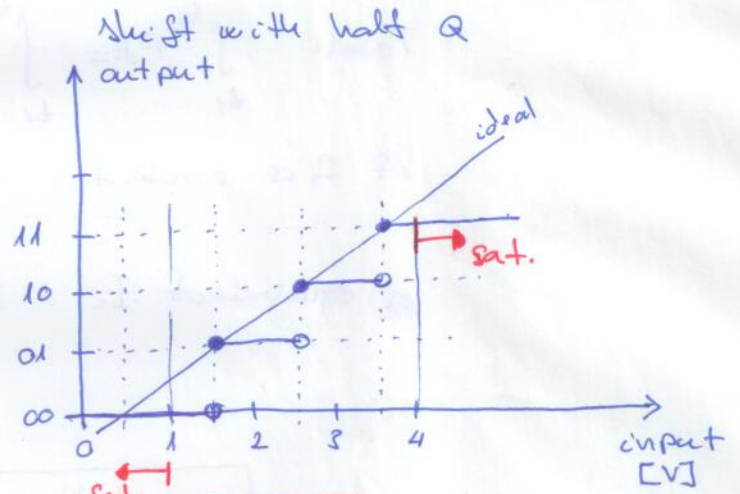 shift with half Q
output
ideal
11
sat.
10
01
00
0 1 2 3 4
input
[V]
sat.